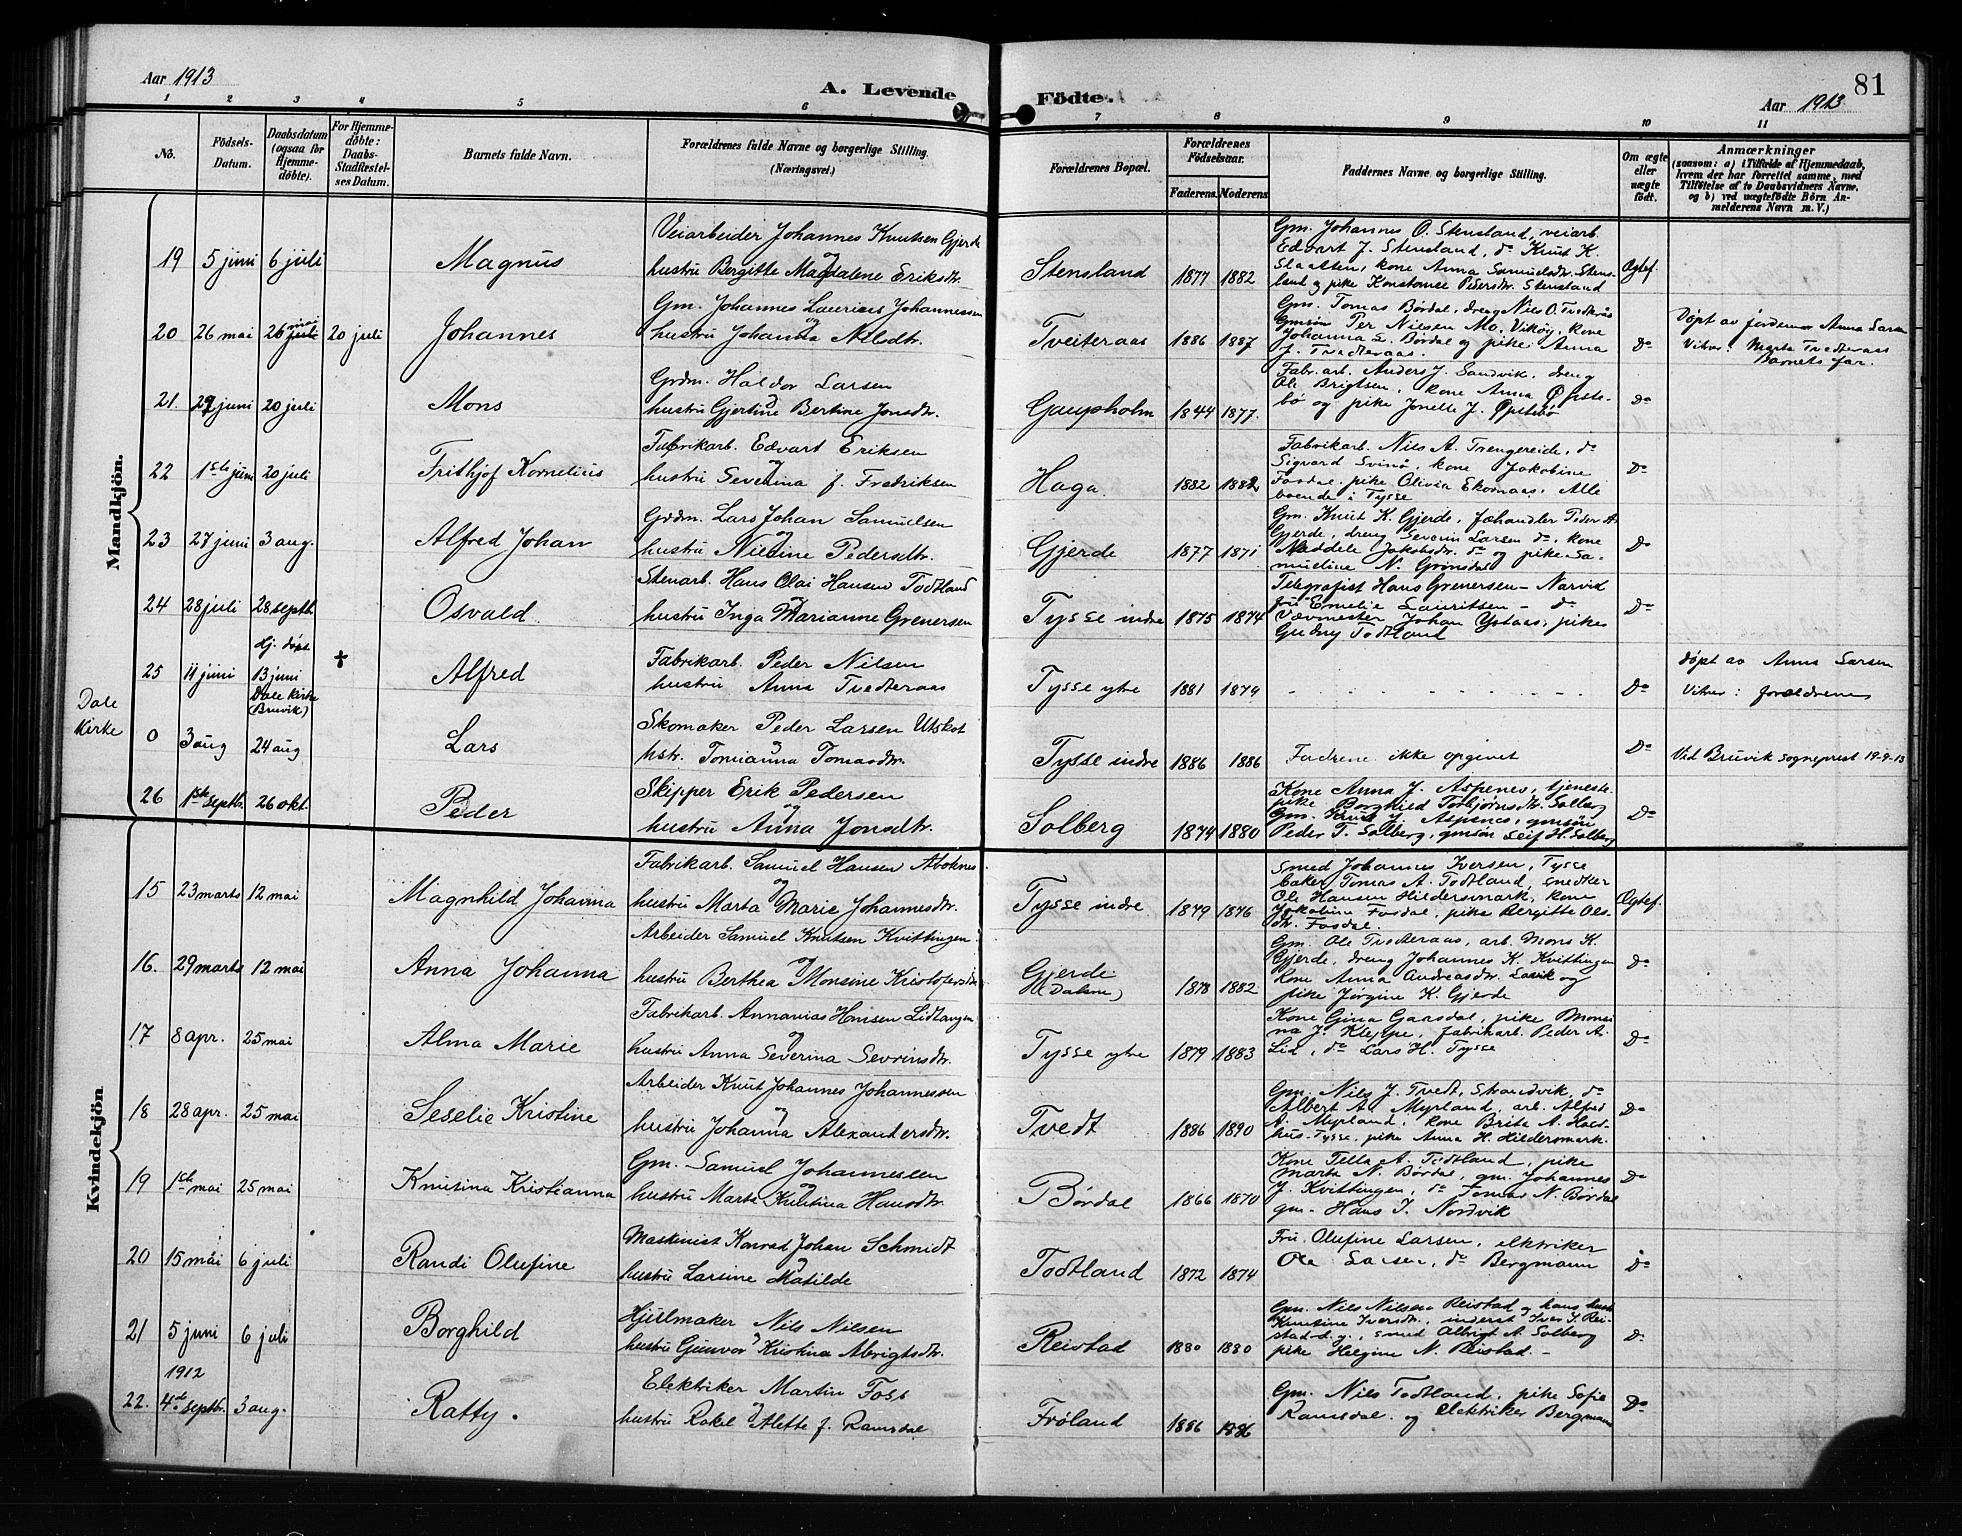 81
Aar 1913
A. Levende Födte.
Aar 1913
1 2 3 4 5 6 7 8 9 10 11
No.
Födsels-
Datum.
Daabsdatum
(ogsaa for
Hjemme-
döbte).
For Hjemme-
döbte:
Daabs-
Stadfæstel-
ses Datum.
Barnets fulde Navn.
Forældrenes fulde Navne og borgerlige Stilling.
(Næringsvei.)
Forældrenes Bopæl.
Forældrenes
Födselsaar.
Faderens. Moderens.
Faddernes Navne og borgerlige Stilling.
Om ægte
eller
uægte
födt.
Anmærkninger
(saasom: a) i Tilfælde af Hjemmedaab,
hvem der har forrettet samme, med
Tilföielse af to Daabsvidners Navne,
og b) ved uægtefödte Börn An-
melderens Navn m. V.)
Mandkjön.
19 5 juni 6 juli
Magnus
Veiarbeider Johannes Knutsen Gjerde
og
hustru Bergitte Magdalene Eriksdtr.
Stensland 1877 1882
Gm. Johannes O. Stensland, veiarb.
Edvart J. Stensland, do Knut K.
Slaatten, kone Anna Samuelsdtr. Stens-
land og pike Konstanse Pedersdtr. Stensland
Ægtef.
20 26 mai 26 juli mai 20 juli
Johannes
Gm. Johannes Lauricus Johannessen
og
hustru Johanna Nilsdtr.
Tveiteraas 1886 1887
Gm. Tomas Børdal, dreng Nils O. Tvedterås
Gmsøn Per Nilsen Mo, Vikøy, kone
Johanna L. Børdal og pike Anna
J. Tvedteraas.
Do
Døpt av jordemor Anna Larsen
Vitner: Marta Tvedteraas
Barnets far.
21. 29 juni 20 juli
Mons
Grdm. Haldor Larsen
hustru Gjertine Bertine Jonsdtr.
Gaupholm 1844 1877.
Fabr. arb. Anders J. Sandvik, dreng
Ole Brigtsen, kone Anna Øpste-
bø og pike Jonette J. Øpstebø
Do
22 1ste juni 20 juli
Frithjof Kornelius
Fabrikarb. Edvart Eriksen
og
hustru Severina f. Fredriksen
Haga. 1882 1882
Fabrikarb. Nils A. Trengereide, do
Sigvard Svinø, kone Jakobine
Fosdal, pike Olivia Ekornaas. Alle
boende i Tysse
Do
23 27 juni 3 aug.
Alfred Johan
Grdm. Lars Johan Samuelsen
og
hustru Nieline Pedersdtr.
Gjerde 1877 1871
Gm. Knut K. Gjerde, fæhandler Peder A.
Gjerde, dreng Severin Larsen do, kone
Maddele Jakobsdtr. do og pike Sa-
mueline N. Grønsdal
Do
24 28 juli 28 septb.
Osvald
Stenarb. Hans Olai Hansen Todtland
og
hustru Inga Marianne Grenersen
Tysse indre 1875 1874
Telegrafist Hans Grenersen - Narvik
fru Emelie Lauritsen - do
Vævmester Johan Ystaas, pike
Gudny Todtland
Do
25 11 juni
Hj. døpt
13 juni
Dale kirke
(Bruvik)
†
Alfred
Fabrikarb. Peder Nilsen
hustru Anna Tvedteraas
Tysse ytre 1881 1879
Do
Døpt av Anna Larsen
Vitner: forældrene
Dale
Kirke
0 3 aug 24 aug
Lars
Skomaker Peder Larsen Utskot
og
hstr. Tomianna Tomasdtr.
Tysse indre 1886 1886
Fadrene ikke opgivet
Do
Ved Bruvik sogneprest 19-9-13
26 1ste septb. 26 okt.
Peder
Skipper Erik Pedersen
og
hustru Anna Jonsdtr.
Solberg 1874 1880
Kone Anna J. Aspenes, tjeneste-
pike Borghild Torbjørnsdtr. Solberg
Gm. Knut J. Aspenes, gmsøn
Peder T. Solberg, gmsøn Leif H. Solberg
Do
Kvindekjön
15 23 marts 12 mai
Magnhild Johanna
Fabrikarb. Samuel Hansen Aboknes
og
hustru Marta Marie Johannesdtr.
Tysse indre 1879 1876
Smed Johannes Iversen, Tysse
baker Tomas A. Todtland, snedker
Ole Hansen Hildersmark, kone
Jakobine Fosdal, pike Bergitte Ols-
dtr. Fosdal.
Ægtef.
16. 29 marts 12 mai
Anna Johanna
Arbeider Samuel Knutsen Kvittingen
og
hustru Berthea Monsine Kristofersdtr.
Gjerde
(Dalene) 1878 1882
Gm. Ole Tvedteraas, arb. Mons K.
Gjerde, dreng Johannes K. Kvittingen
kone Anna Andreasdtr. Lavik og
pike Jørgine K. Gjerde
Do
17 8 apr. 25 mai
Alma Marie
Fabrikarb. Annanias Hansen Lidtangen
og
hustru Anna Severina Sevrinsdtr.
Tysse ytre 1879 1883
Kone Gina Gaasdal, pike Monsi-
na J. Kleppe, fabrikarb. Peder A.
Lid, do Lars H. Tysse
Do
18 28 apr. 25 mai
Seselie Kristine
Arbeider Knut Johannes Johannessen
og
hustru Johanna Alexandersdtr.
Tvedt 1886 1890
Gm. Nils J. Tvedt, Strandvik, do
Albert A. Myrland, arb. Alfred
A. Myrland, kone Brite A. Hod-
hus. Tysse, pike Anna H. Hildersmark.
Do
19 1ste mai 25 mai
Knutina Kristianna
Gm. Samuel Johannessen
og
hustru Marta Knutina Hansdtr.
Børdal 1866 1870
Kone Tella A. Todtland, pike
Marta N. Børdal, gm. Johannes
J. Kvittingen, do Tomas N. Børdal
gm. Hans J. Nordvik
Do
20 15 mai 6 juli
Randi Olufine
Maskinist Konrad Johan Schmidt
og
hustru Larsine Matilde
Todtland 1872 1874
Fru. Olufine Larsen, elktriker
Ole Larsen, do Bergmann
Do
21 5 juni 6 juli
Borghild
Hjulmaker Nils Nilsen
og
hustru Gunvor Kristina Albrigtsdtr.
Reistad 1880 1880
Gm. Nils Nilsen Reistad og hans hust.
Knutine Iversdtr., inderst Iver J. Rei-
stad d. y., smed Albrigt A. Solberg
pike Helgine N. Reistad. -
Do
1912
22. 4de septb. 3 aug.
Ratty.
Elektriker Martin Foss
og
hustru Rakel Alette f. Ramsdal
Frøland 1886 1886
Gm. Nils Todtland, pike Sofie
Ramsdal. og elektriker Bergmann
Do